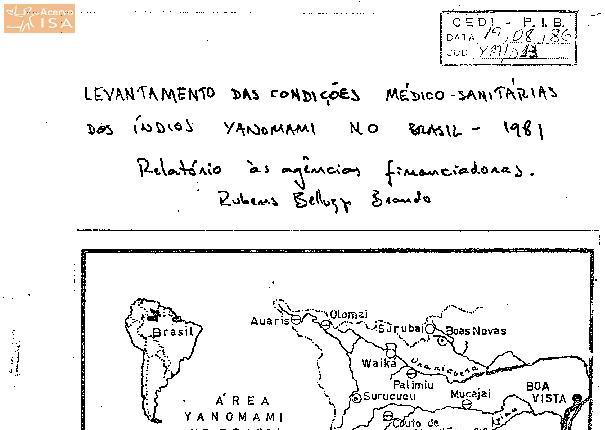 Acervo
ISA
CEDI - P.I.B.
DATA 19/08/86
COD. YMD
LEVANTAMENTO DAS CONDIÇÕES MÉDICO-SANITÁRIAS
DOS ÍNDIOS YANOMAMI NO BRASIL - 1981
Relatório às agências financiadoras.
Rubens Belluzzo Brando
Brasil
Auaris
Olomai
Surubai
Boas Novas
Waiká
Uraricoera
Palimiu
Surucucu
Mucajaí
BOA
VISTA
ÁREA
YANOMAMI
Couto de